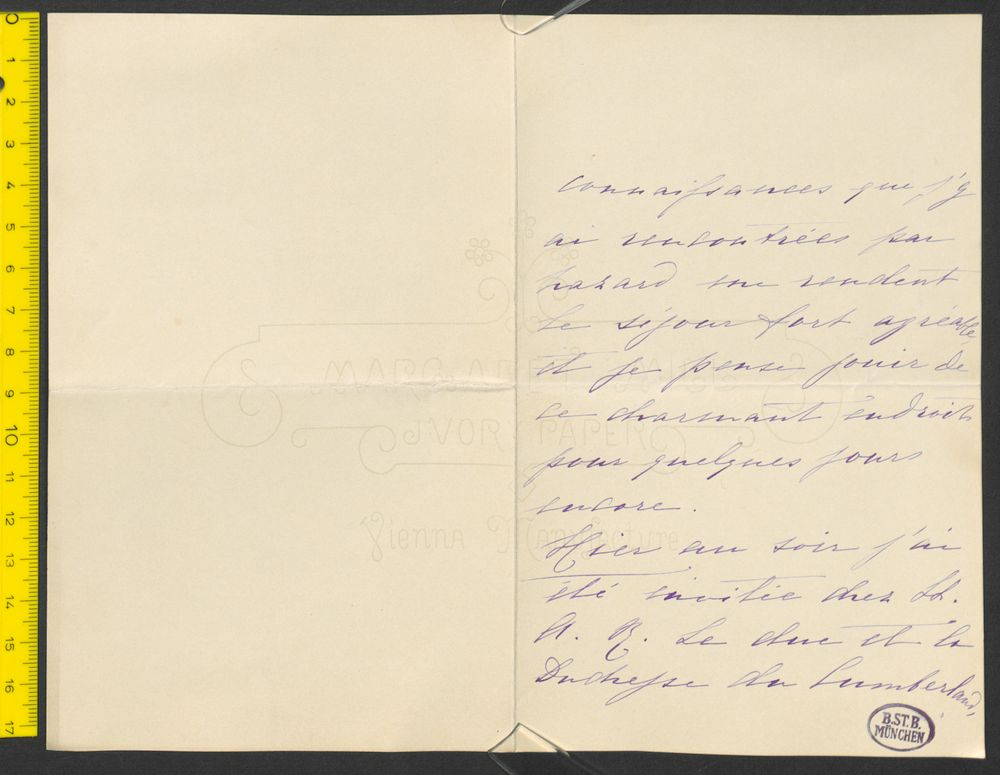 connaissances que j'y
ai rencontrées par
hazard me rendent
le séjour fort agréable
et je pense jouir de
ce charmant endroit
pour quelques jours
encore.
Hier au soir j'ai
été invitée chez
A. R. le duc et la
Duchesse du Cumberland,
B.ST.B.
MÜNCHEN
MARGARET
IVORY PAPER
Vienna Manufacture
0
1
2
3
4
5
6
7
8
9
10
11
12
13
14
15
16
17